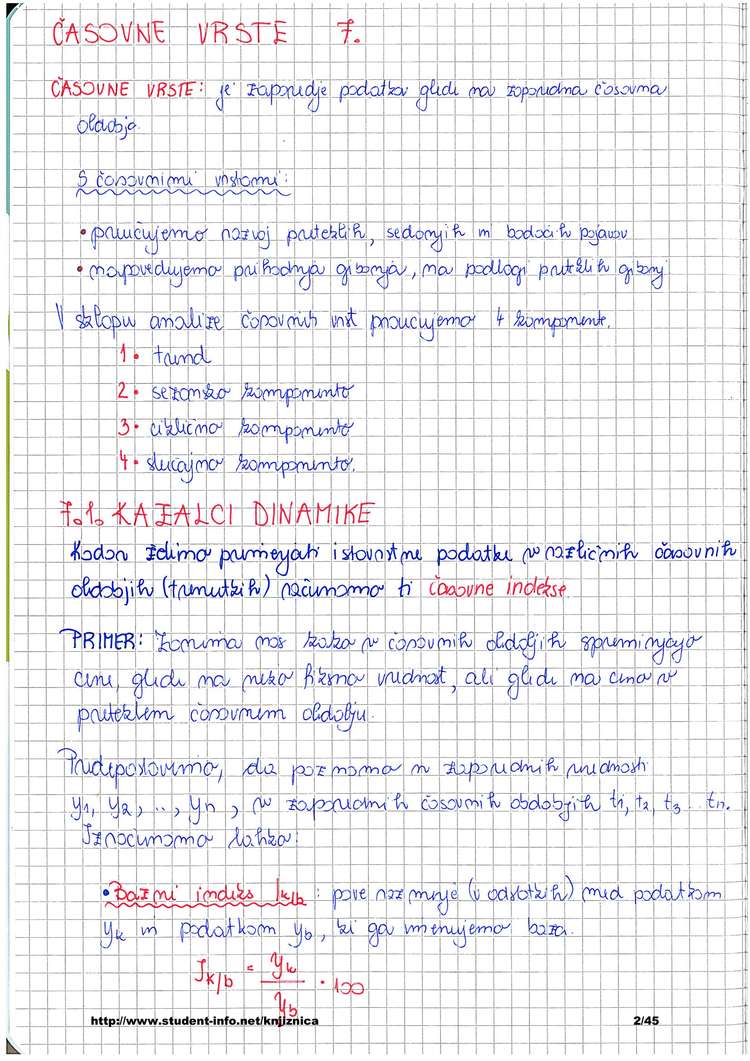 ČASOVNE VRSTE 7.
ČASOVNE VRSTE: je zaporedje podatkov glede na zaporedna časovna
obdobja.
S časovnimi vrstami:
• proučujemo razvoj preteklih, sedanjih in bodočih pojavov
• napovedujemo prihodnja gibanja, na podlagi preteklih gibanj
V sklopu analize časovnih vrst proučujemo 4 komponente.
1. trend
2. sezonsko komponento
3. ciklično komponento
4. slučajno komponento.
7.1. KAZALCI DINAMIKE
Kadar želimo primerjati istovrstne podatke v različnih časovnih
obdobjih (trenutkih) računamo ti časovne indekse.
PRIMER: Zanima nas kako v časovnih obdobjih spreminjajo
cene, glede na neko fiksno vrednost, ali glede na ceno v
preteklem časovnem obdobju.
Predpostavimo, da poznamo n zaporednih vrednosti
y1, y2, .., yn, v zaporednih časovnih obdobjih t1, t2, t3 .. tn.
Izračunamo lahko:
• Bazni indeks Ik/b : pove razmerje (v odstotkih) med podatkom
yk in podatkom yb, ki ga imenujemo baza.
Ik/b = yk / yb · 100
http://www.student-info.net/knjiznica 2/45